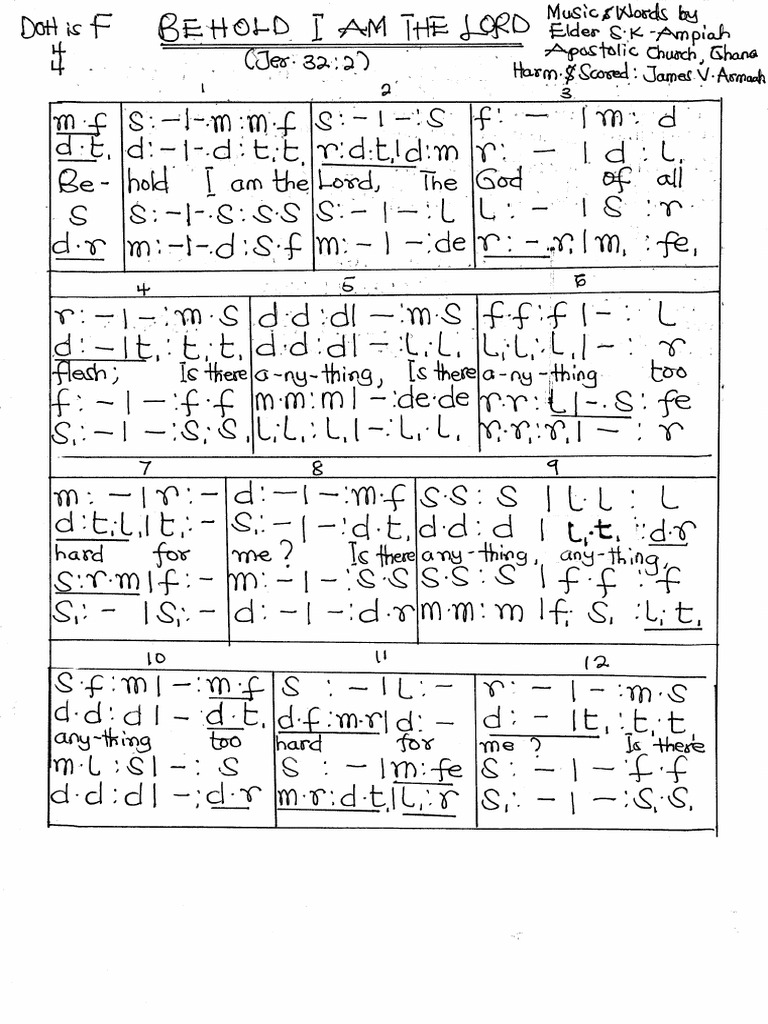 DOH is F BEHOLD I AM THE LORD Music & Words by
4 Elder S.K-Ampiah
4 (Jer. 32:2) Apostolic Church, Ghana
Harm. & Scored: James V. Armah
1 2 3
m.f s:-|-.m:m.f s:-|-:s f: - |m: d
d.t, d:-|-.d:t,.t, r:d.t,|d:m r: - |d:l,
Be- hold I am the Lord, The God of all
s s:-|-.s:s.s s:-|-:l l: - |s:r
d.r m:-|-.d:s.f m:-|-:de r:-.r,|m,:fe,
4 5 6
r:-|-:m.s d.d:d|-:m.s f.f:f|-: l
d:-|t,:t,.t, d.d:d|-:l,.l, l,.l,:l,|-: r
flesh; Is there a-ny-thing, Is there a-ny-thing too
f:-|-:f.f m.m:m|-:de.de r.r:l|-.s:fe
s,:-|-:s,.s, l,.l,:l,|-:l,.l, r,.r,:r,|-: r
7 8 9
m: -|r:- d:-|-:m.f s.s:s |l.l: l
d:t,.l,|t,:- s,:-|-:d.t, d.d:d |l,.t,:d.r
hard for me? Is there any-thing, any-thing,
s:r.m|f:- m:-|-:s.s s.s:s |f.f:f
s,:- |s,:- d:-|-:d.r m.m:m |f, s,:l,.t,
10 11 12
s.f:m|-:m.f s :-|l:- r:-|-:m.s
d.d:d|-d.t, d.f:m.r|d:- d:-|t,:t,.t,
any-thing too hard for me? Is there
m.l:s|-: s s :-|m:fe s:-|-:f.f
d.d:d|-:d.r m.r:d.t,|l,:r s,:-|-:s,.s,